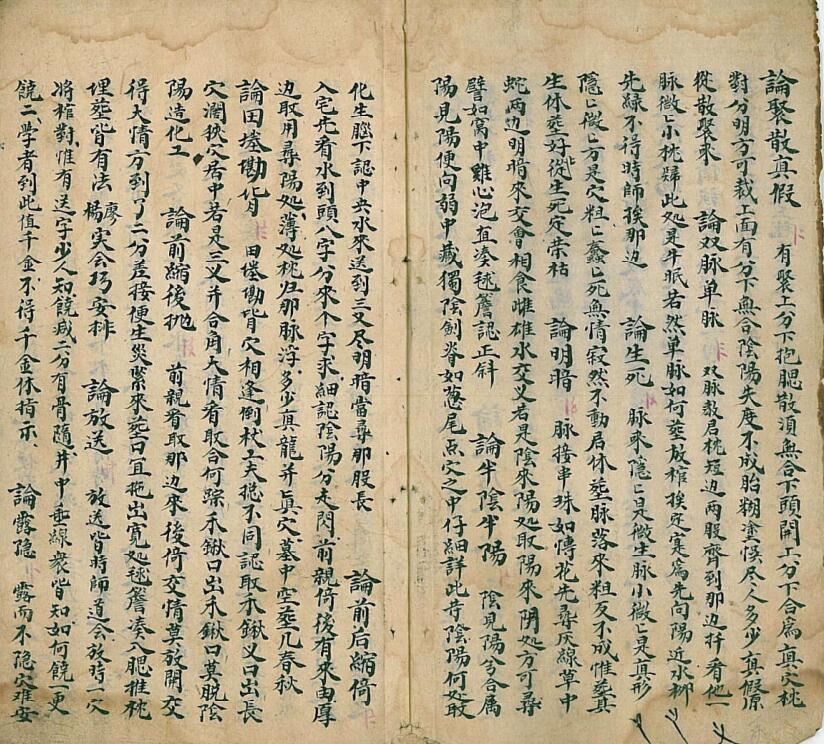 論聚散真假 有聚上分下抱腮散湏無合下頭開上分下合為真穴枕
對分明方可裁上面有分下無合陰陽失度不成胎糊塗悮尽人多少真假原
從散聚來 論双脉单脉 双脉教君枕短边两股齊到那边扦看他一
脉微匕小枕歸此処是牛眠若然单脉如何塟放棺挨定寔為先向陽近水柳
先綠不得時師挨那边 論生死 脉來隱匕是微生脉小微匕是真形
隱匕微匕方是穴粗匕蠢匕死無情寂然不動君休塟脉落來粗友不成惟塟真
生休塟死好從生死定荣枯 論明暗 脉接串珠如慱花先尋灰線草中
蛇两边明暗來交會相食雌雄水交义若是陰來陽処取陽來阴処方可尋
譬如窩中雖心泡直凑毬簷認正斜 論半陰半陽 陰見陽兮合属
陽見陽便向弱中藏獨陰劍脊如葱尾点穴之中仔細詳此昔陰陽何処取
化生腦下認中央水來送到三义尽明暗當尋那股長 論前后縮倚
入宅先看水到頭八字分來个字求細認陰陽分走閃前親倚後有來由厚
边取用尋陽処薄処枕归那脉浮多少真龍并真穴墓中空塟几春秋
論田塍墈背 田塍墈背穴相逢倒杖工夫捴不同認取禾鍬义口出長
穴濶狭穴居中若是三义并合角大情看取合何踪禾鍬口出禾鍬口莫脱陰
陽造化工 論前縮後抛 前親看取那边來後倚交情莫放開交
得大情方到了二分差接便生災緊來塟口宜拖出寛処毬簷凑入腮推枕
埋塟皆有法楊廖实会巧安排 論放送 放送皆時師道会放時一穴
將棺對惟有送字少人知饒减二分有骨隨井中垂線衆皆知如何饒一更
饒二学者到此值千金不得千金休指示 論露隐 露而不隐穴难安